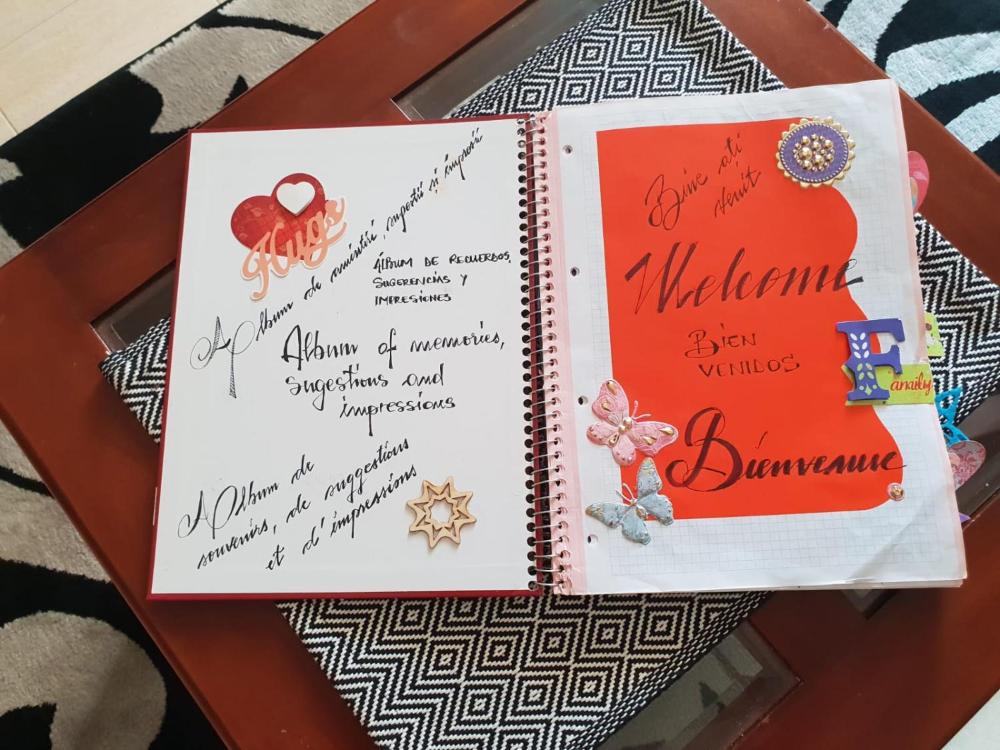 Hugs
Album de amintiri, sugestii si impresii
ÁLBUM DE RECUERDOS,
SUGERENCIAS Y
IMPRESIONES
Album of memories,
sugestions and
impressions
Album de
souvenirs, de suggestions
et d'impressions
Bine ați
venit
Welcome
BIEN
VENIDOS
Bienvenue
F
Family